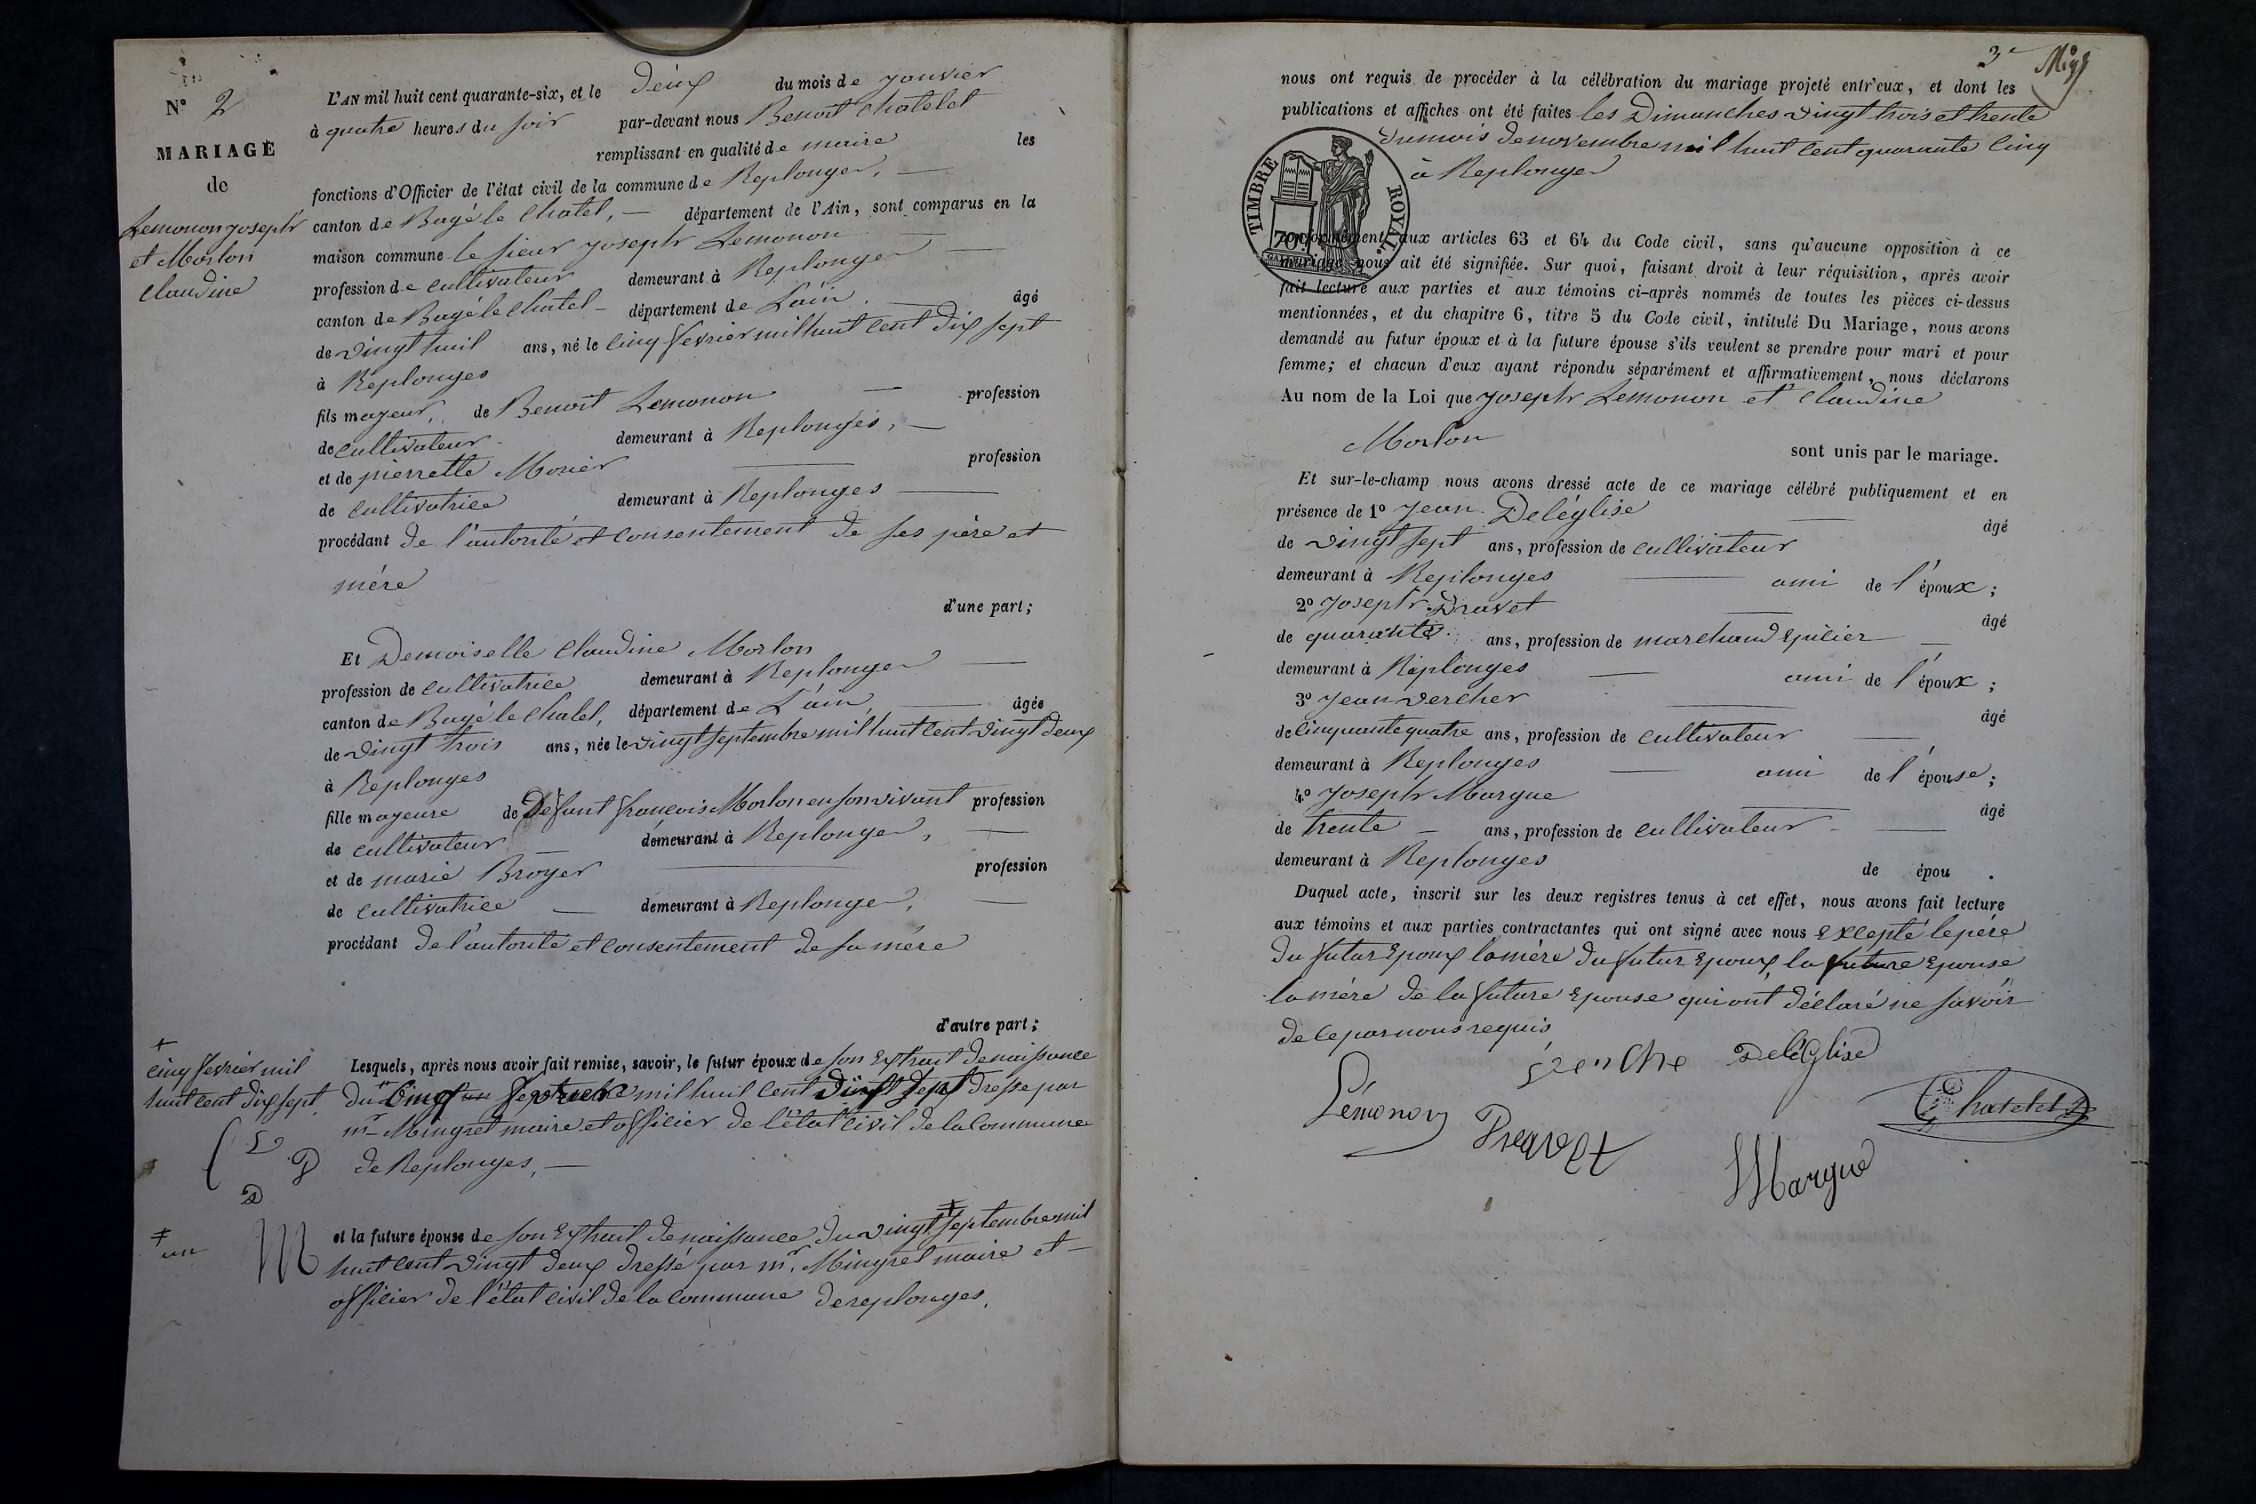 N° 2
MARIAGE
de
Lemonon joseph
et Morlon
Claudine
L'AN mil huit cent quarante-six, et le deux du mois de janvier
à quatre heures du soir par-devant nous Benoit Chatelet
remplissant en qualité de maire les
fonctions d'Officier de l'état civil de la commune de Replonges,
canton de Bagé le Chatel, département de l'Ain, sont comparus en la
maison commune le sieur joseph Lemonon
profession de cultivateur demeurant à Replonges
canton de Bagé le Chatel département de L'ain âgé
de vingt huit ans, né le cinq fevrier mil huit cent dix sept
à Replonges
fils majeur de Benoit Lemonon profession
de cultivateur demeurant à Replonges,
et de pierrette Morier profession
de cultivatrice demeurant à Replonges
procédant de l'autorité et consentement de ses père et
mére
d'une part;
Et Demoiselle Claudine Morlon
profession de cultivatrice demeurant à Replonges
canton de Bagé le Chatel, département de L'ain, âgée
de vingt trois ans, née le vingt septembre mil huit cent vingt deux
à Replonges
fille majeure de Defunt françois Morlon en son vivant profession
de cultivateur demeurant à Replonges,
et de marie Broyer profession
de cultivatrice demeurant à Replonges,
procédant de l'autorité et consentement de sa mére
d'autre part;
+
cinq fevrier mil
huit cent dix sept.
Lesquels, après nous avoir fait remise, savoir, le futur époux de son Extrait de naissance
du mil huit cent dresse par
mr Mingret maire et officier de l'état civil de la Commune
de Replonges,
L D
D
‡
un M
et la future épouse de son Extrait de naissance du vingt ‡ septembre mil
huit cent vingt deux dressé par mr. Mingret maire et
officier de l'état civil de la commune de replonges.
3e
nous ont requis de procéder à la célébration du mariage projeté entr'eux, et dont les
publications et affiches ont été faites les Dimanches vingt trois et trente
du mois de novembre mil huit cent quarante cinq
à Replonges
TIMBRE ROYAL.
70c
conformément aux articles 63 et 64 du Code civil, sans qu'aucune opposition à ce
mariage nous ait été signifiée. Sur quoi, faisant droit à leur réquisition, après avoir
fait lecture aux parties et aux témoins ci-après nommés de toutes les pièces ci-dessus
mentionnées, et du chapitre 6, titre 5 du Code civil, intitulé Du Mariage, nous avons
demandé au futur époux et à la future épouse s'ils veulent se prendre pour mari et pour
femme; et chacun d'eux ayant répondu séparément et affirmativement, nous déclarons
Au nom de la Loi que joseph Lemonon et Claudine
Morlon
sont unis par le mariage.
Et sur-le-champ nous avons dressé acte de ce mariage célébré publiquement et en
présence de 1° jean Deléglise âgé
de vingt sept ans, profession de cultivateur
demeurant à Replonges ami de l'époux;
2° joseph Dravet âgé
de quarante ans, profession de marchand Epicier
demeurant à Replonges ami de l'époux;
3° jean vercher âgé
de cinquante quatre ans, profession de cultivateur
demeurant à Replonges ami de l'épouse;
4° joseph Margue âgé
de trente ans, profession de cultivateur
demeurant à Replonges de épou .
Duquel acte, inscrit sur les deux registres tenus à cet effet, nous avons fait lecture
aux témoins et aux parties contractantes qui ont signé avec nous excepté le pére
du futur Epoux la mére du futur Epoux, la future Epouse
la mére de la future Epouse qui ont déclaré ne savoir
de ce par nous requis
Deléglise
Lémonon Chatelet
Margue